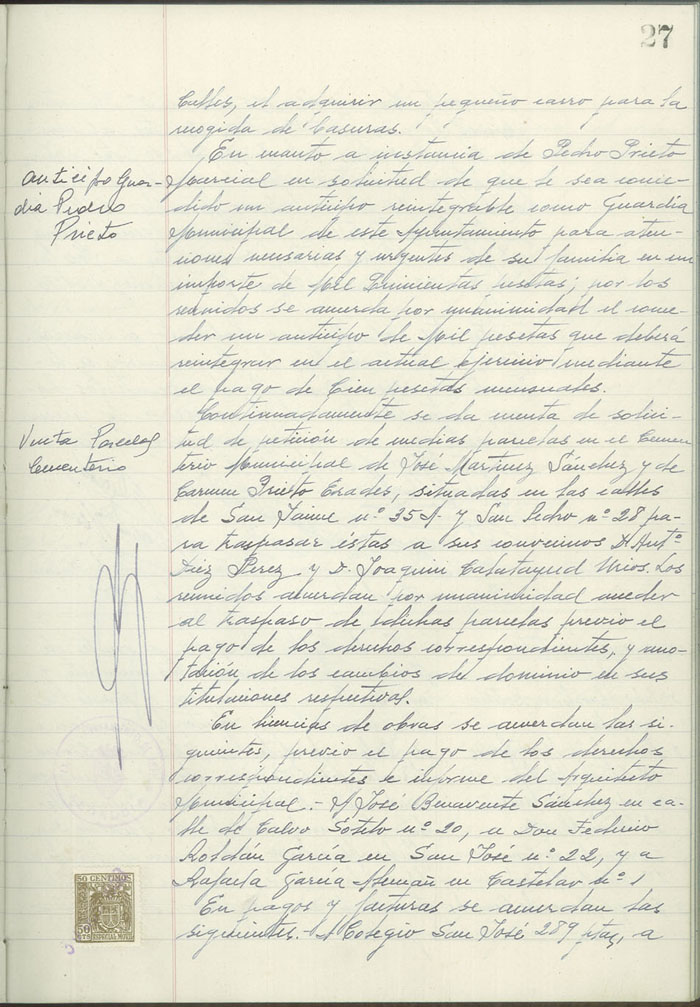 27
Calles, el adquirir un pequeño carro para la
recogida de basuras.
Anticipo Guar-
dia Pedro
Prieto
En cuanto a instancia de Pedro Prieto
Marcial en solicitud de que le sea conce-
dido un anticipo reintegrable como Guardia
Municipal de este Ayuntamiento para aten-
ciones necesarias y urgentes de su familia en un
importe de Mil Quinientas pesetas; por los
reunidos se acuerda por unanimidad el conce-
der un anticipo de Mil pesetas que deberá
reintegrar en el actual ejercicio mediante
el pago de Cien pesetas mensuales.
Venta Parcelas
Cementerio
Continuadamente se da cuenta de solici-
tud de petición de medias parcelas en el Cemen-
terio Municipal de José Martínez Sánchez y de
Carmen Prieto Esades, situadas en las calles
de San Jaime nº 35 A. y San Pedro nº 28 pa-
ra traspasar éstas a sus convecinos D Antº
Díez Pérez y D. Joaquín Calatayud Urios. Los
reunidos acuerdan por unanimidad acceder
al traspaso de dichas parcelas previo el
pago de los derechos correspondientes, y ano-
tación de los cambios de dominio en sus
titulaciones respectivas.
En licencias de obras se acuerdan las si-
guientes, previo el pago de los derechos
correspondientes e informe del Arquitecto
Municipal.- A José Benavente Sánchez en ca-
lle de Calvo Sotelo nº 20, a Don Federico
Roldán García en San José nº 22, y a
Rafaela García Alemañ en Castelar nº 1
En pagos y facturas se acuerdan las
siguientes.- A Colegio San José 289 ptas, a
50 CENTIMOS
50
CTS
ESPECIAL MOVIL